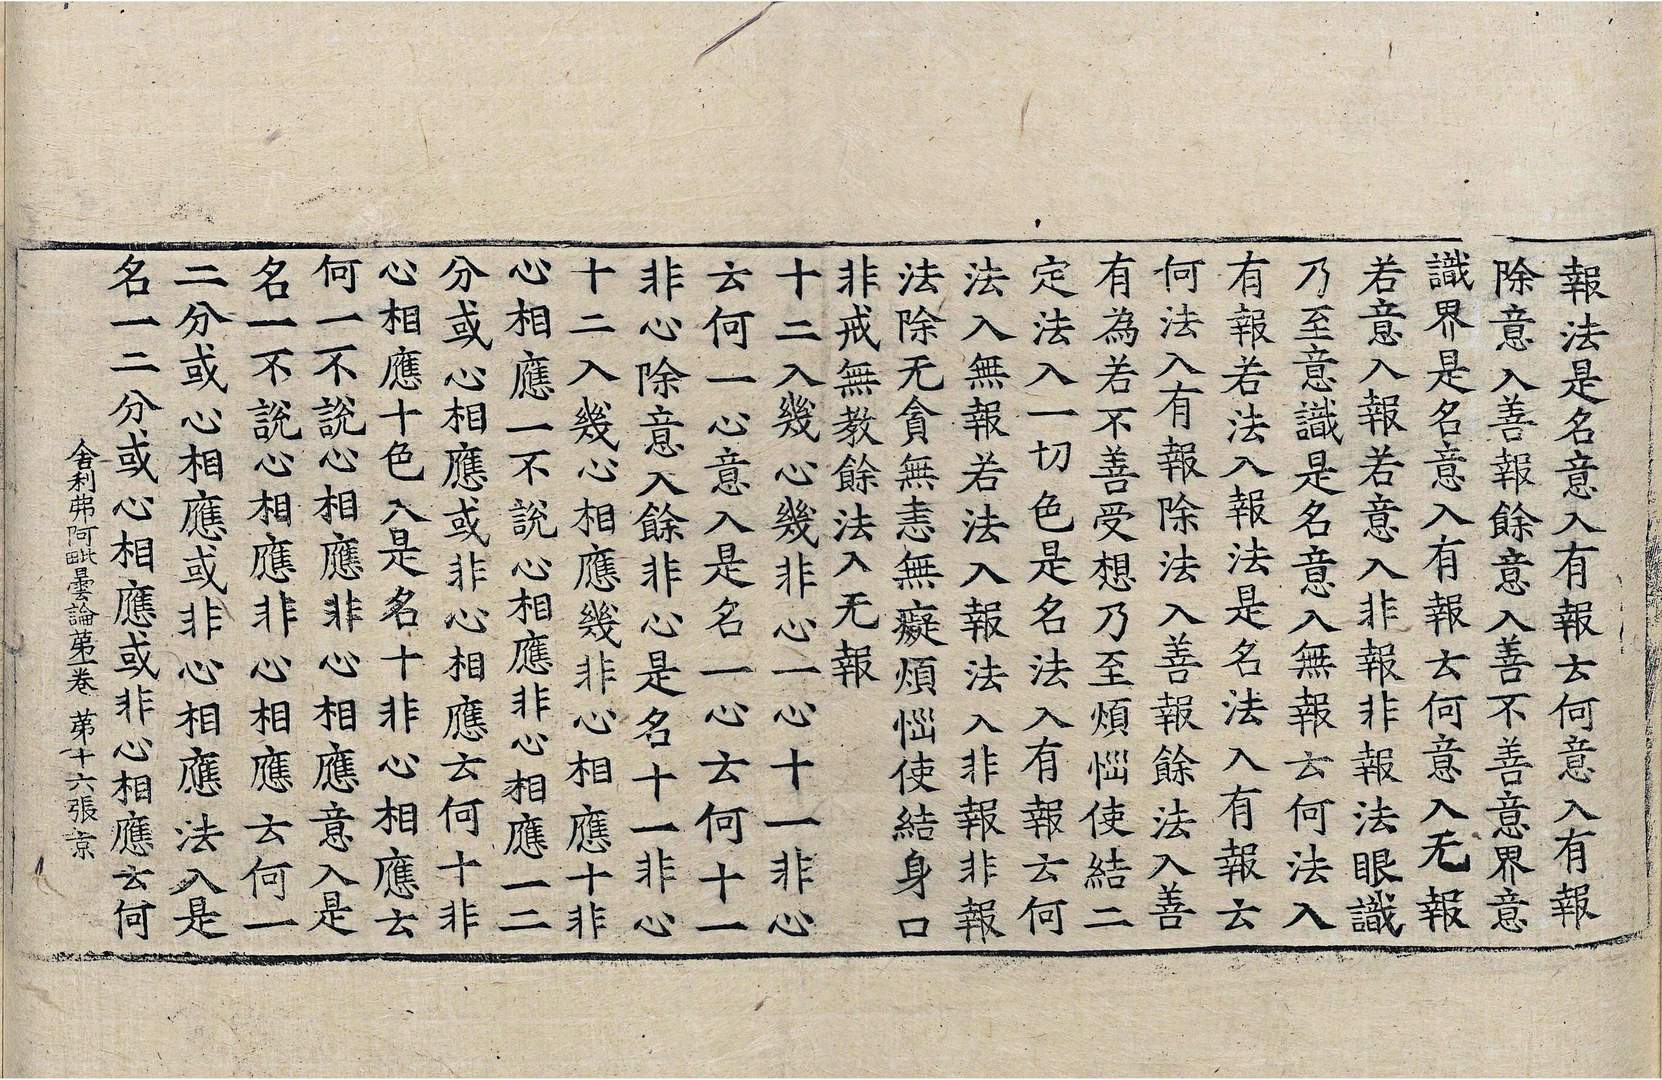 報法是名意入有報云何意入有報
除意入善報餘意入善不善意界意
識界是名意入有報云何意入无報
若意入報若意入非報非報法眼識
乃至意識是名意入無報云何法入
有報若法入報法是名法入有報云
何法入有報除法入善報餘法入善
有為若不善受想乃至煩惱使結二
定法入一切色是名法入有報云何
法入無報若法入報法入非報非報
法除无貪無恚無癡煩惱使結身口
非戒無教餘法入无報
十二入幾心幾非心一心十一非心
云何一心意入是名一心云何十一
非心除意入餘非心是名十一非心
十二入幾心相應幾非心相應十非
心相應一不說心相應非心相應一二
分或心相應或非心相應云何十非
心相應十色入是名十非心相應云
何一不說心相應非心相應意入是
名一不說心相應非心相應云何一
二分或心相應或非心相應法入是
名一二分或心相應或非心相應云何
舍利弗阿毗曇論第一卷 第十六張 京